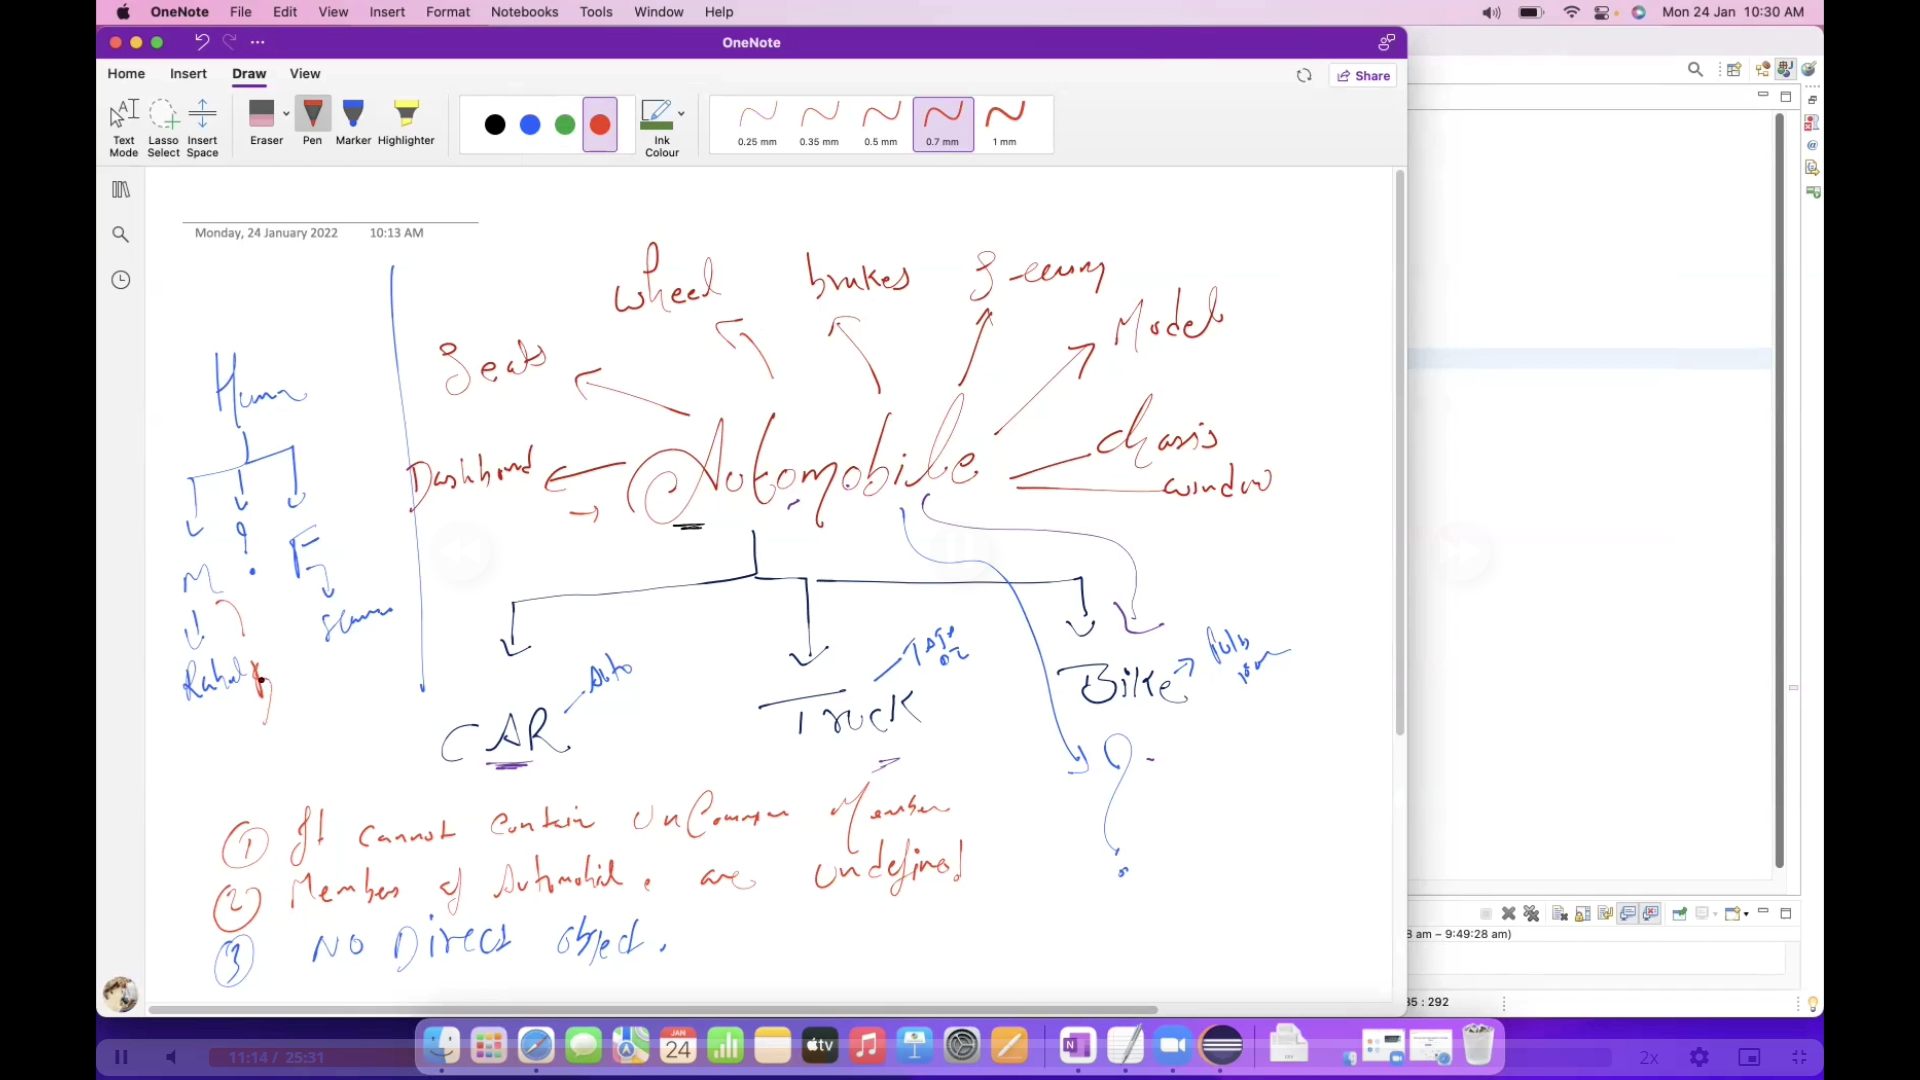 OneNote File Edit View Insert Format Notebooks Tools Window Help Mon 24 Jan 10:30 AM
OneNote
Home Insert Draw View Share
Text Mode
Lasso Select
Insert Space
Eraser
Pen
Marker
Highlighter
Ink Colour
0.25 mm 0.35 mm 0.5 mm 0.7 mm 1 mm
Monday, 24 January 2022 10:13 AM
wheel brakes
Model
Seats
Human
Automobile
Chasis
window
M ? F
Rahul
Auto
CAR
Truck
Bike
?
① It cannot contain UnCommon Member
② Members of Automobile are undefined
③ NO Direct object.
8 am – 9:49:28 am)
35 : 292
JAN
24
tv
11:14 / 25:31
2x